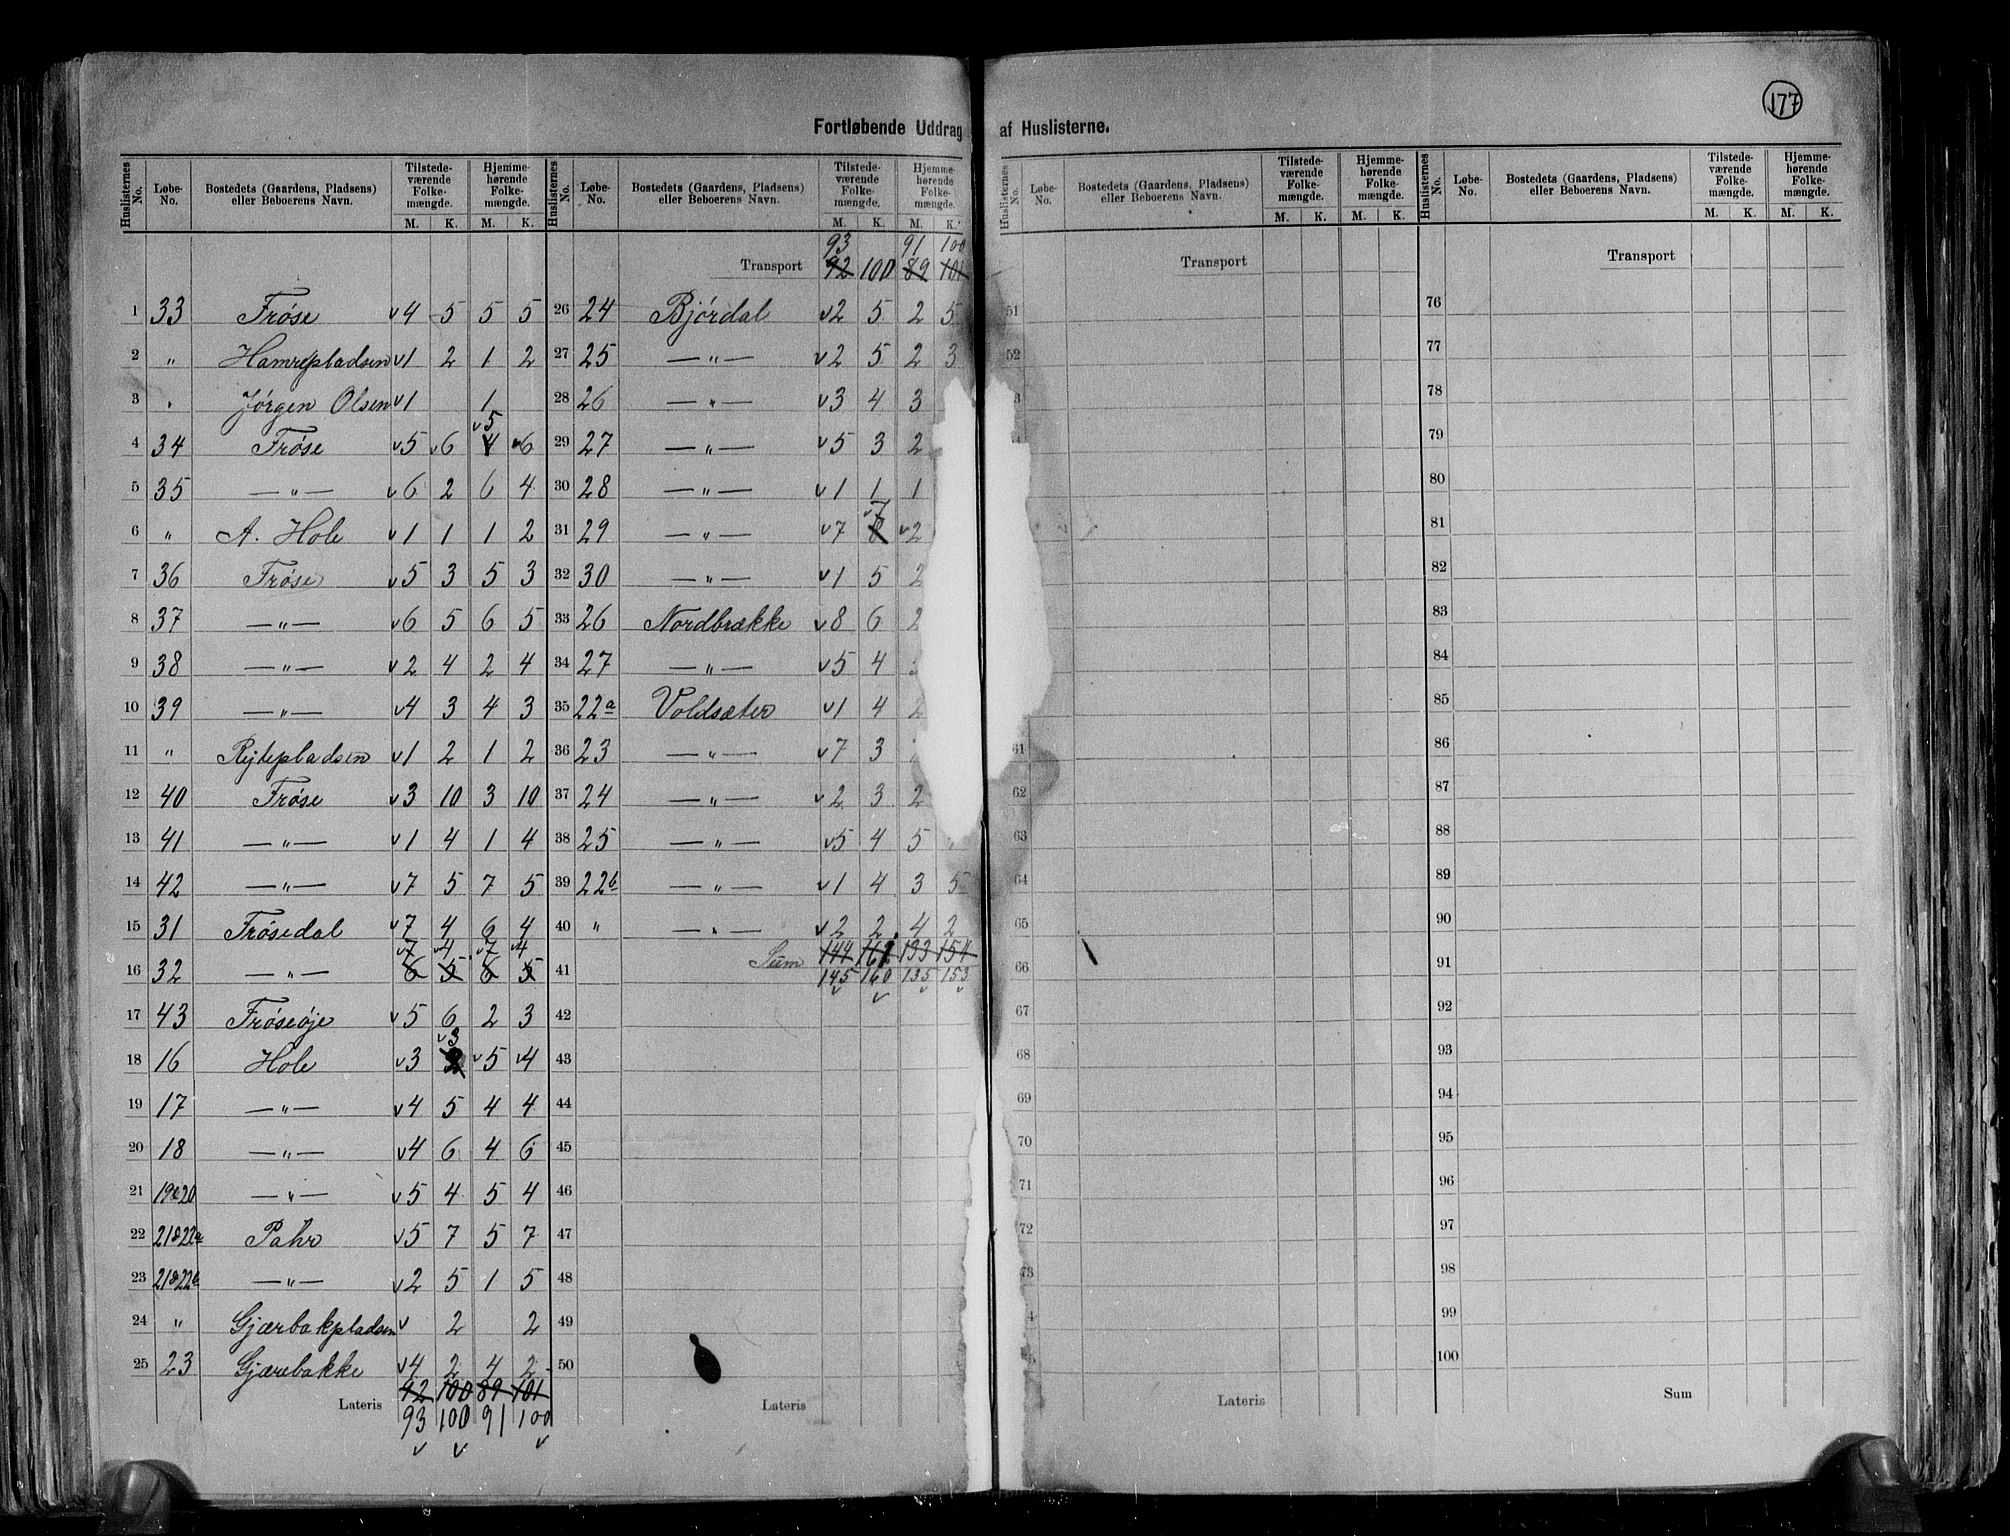 177
Fortløbende Uddrag af Huslisterne.
Huslisternes No. Løbe-No. Bostedets (Gaardens, Pladsens) eller Beboerens Navn. Tilstede-værende Folke-mængde. M. K. Hjemme-hørende Folke-mængde. M. K.
1 33 Frøse v4 5 5 5
2 " Hamrepladsen v1 2 1 2
3 " Jørgen Olsen v1 1
4 34 Frøse v5 v6 4 v5 v6
5 35 — " — v6 2 6 4
6 " A. Hole v1 1 1 2
7 36 Frøse v5 3 5 3
8 37 — " — v6 5 6 5
9 38 — " — v2 4 2 4
10 39 — " — v4 3 4 3
11 " Rejtepladsen v1 2 1 2
12 40 Frøse v3 10 3 10
13 41 — " — v1 4 1 4
14 42 — " — v7 5 7 5
15 31 Frøsedal v7 4 6 4
v7 v4 v7 v4
16 32 — " — 6 5 6 5
17 43 Frøseøje v5 6 2 3
18 16 Hole v3 v3 v5 v4
19 17 — " — v4 5 4 4
20 18 — " — v4 6 4 6
21 19&20 — " — v5 4 5 4
22 21&22a Pahr v5 7 5 7
23 21&22b — " — v2 5 1 5
24 " Gjærbakpladsen v 2 2
25 23 Gjærebakke v4 2 4 2
92 100 89 101
Lateris 93 100 91 100
v v v
Huslisternes No. Løbe-No. Bostedets (Gaardens, Pladsens) eller Beboerens Navn. Tilstede-værende Folke-mængde. M. K. Hjemme-hørende Folke-mængde. M. K.
93 91 100
Transport 92 100 89 101
26 24 Bjørdal v2 5 2 5
27 25 — " — v2 5 2 3
28 26 — " — v3 4 3
29 27 — " — v5 3 2
30 28 — " — v1 1 1
v7
31 29 — " — v7 8 v2
32 30 — " — v1 5 2
33 26 Nordbrække v8 6 2
34 27 — " — v5 4
35 22a Voldsæter v1 4 2
36 23 — " — v7 3
37 24 — " — v2 3 2
38 25 — " — v5 4 5
39 22b — " — v1 4 3 5
40 " — " — v2 2 4 2
Sum 144 161 133 154
41 145 160 135 153
v v v v
42
43
44
45
46
47
48
49
50
Lateris
Huslisternes No. Løbe-No. Bostedets (Gaardens, Pladsens) eller Beboerens Navn. Tilstede-værende Folke-mængde. M. K. Hjemme-hørende Folke-mængde. M. K.
Transport
51
52
61
62
63
64
65
66
67
68
69
70
71
72
73
Lateris
Huslisternes No. Løbe-No. Bostedets (Gaardens, Pladsens) eller Beboerens Navn. Tilstede-værende Folke-mængde. M. K. Hjemme-hørende Folke-mængde. M. K.
Transport
76
77
78
79
80
81
82
83
84
85
86
87
88
89
90
91
92
93
94
95
96
97
98
99
100
Sum